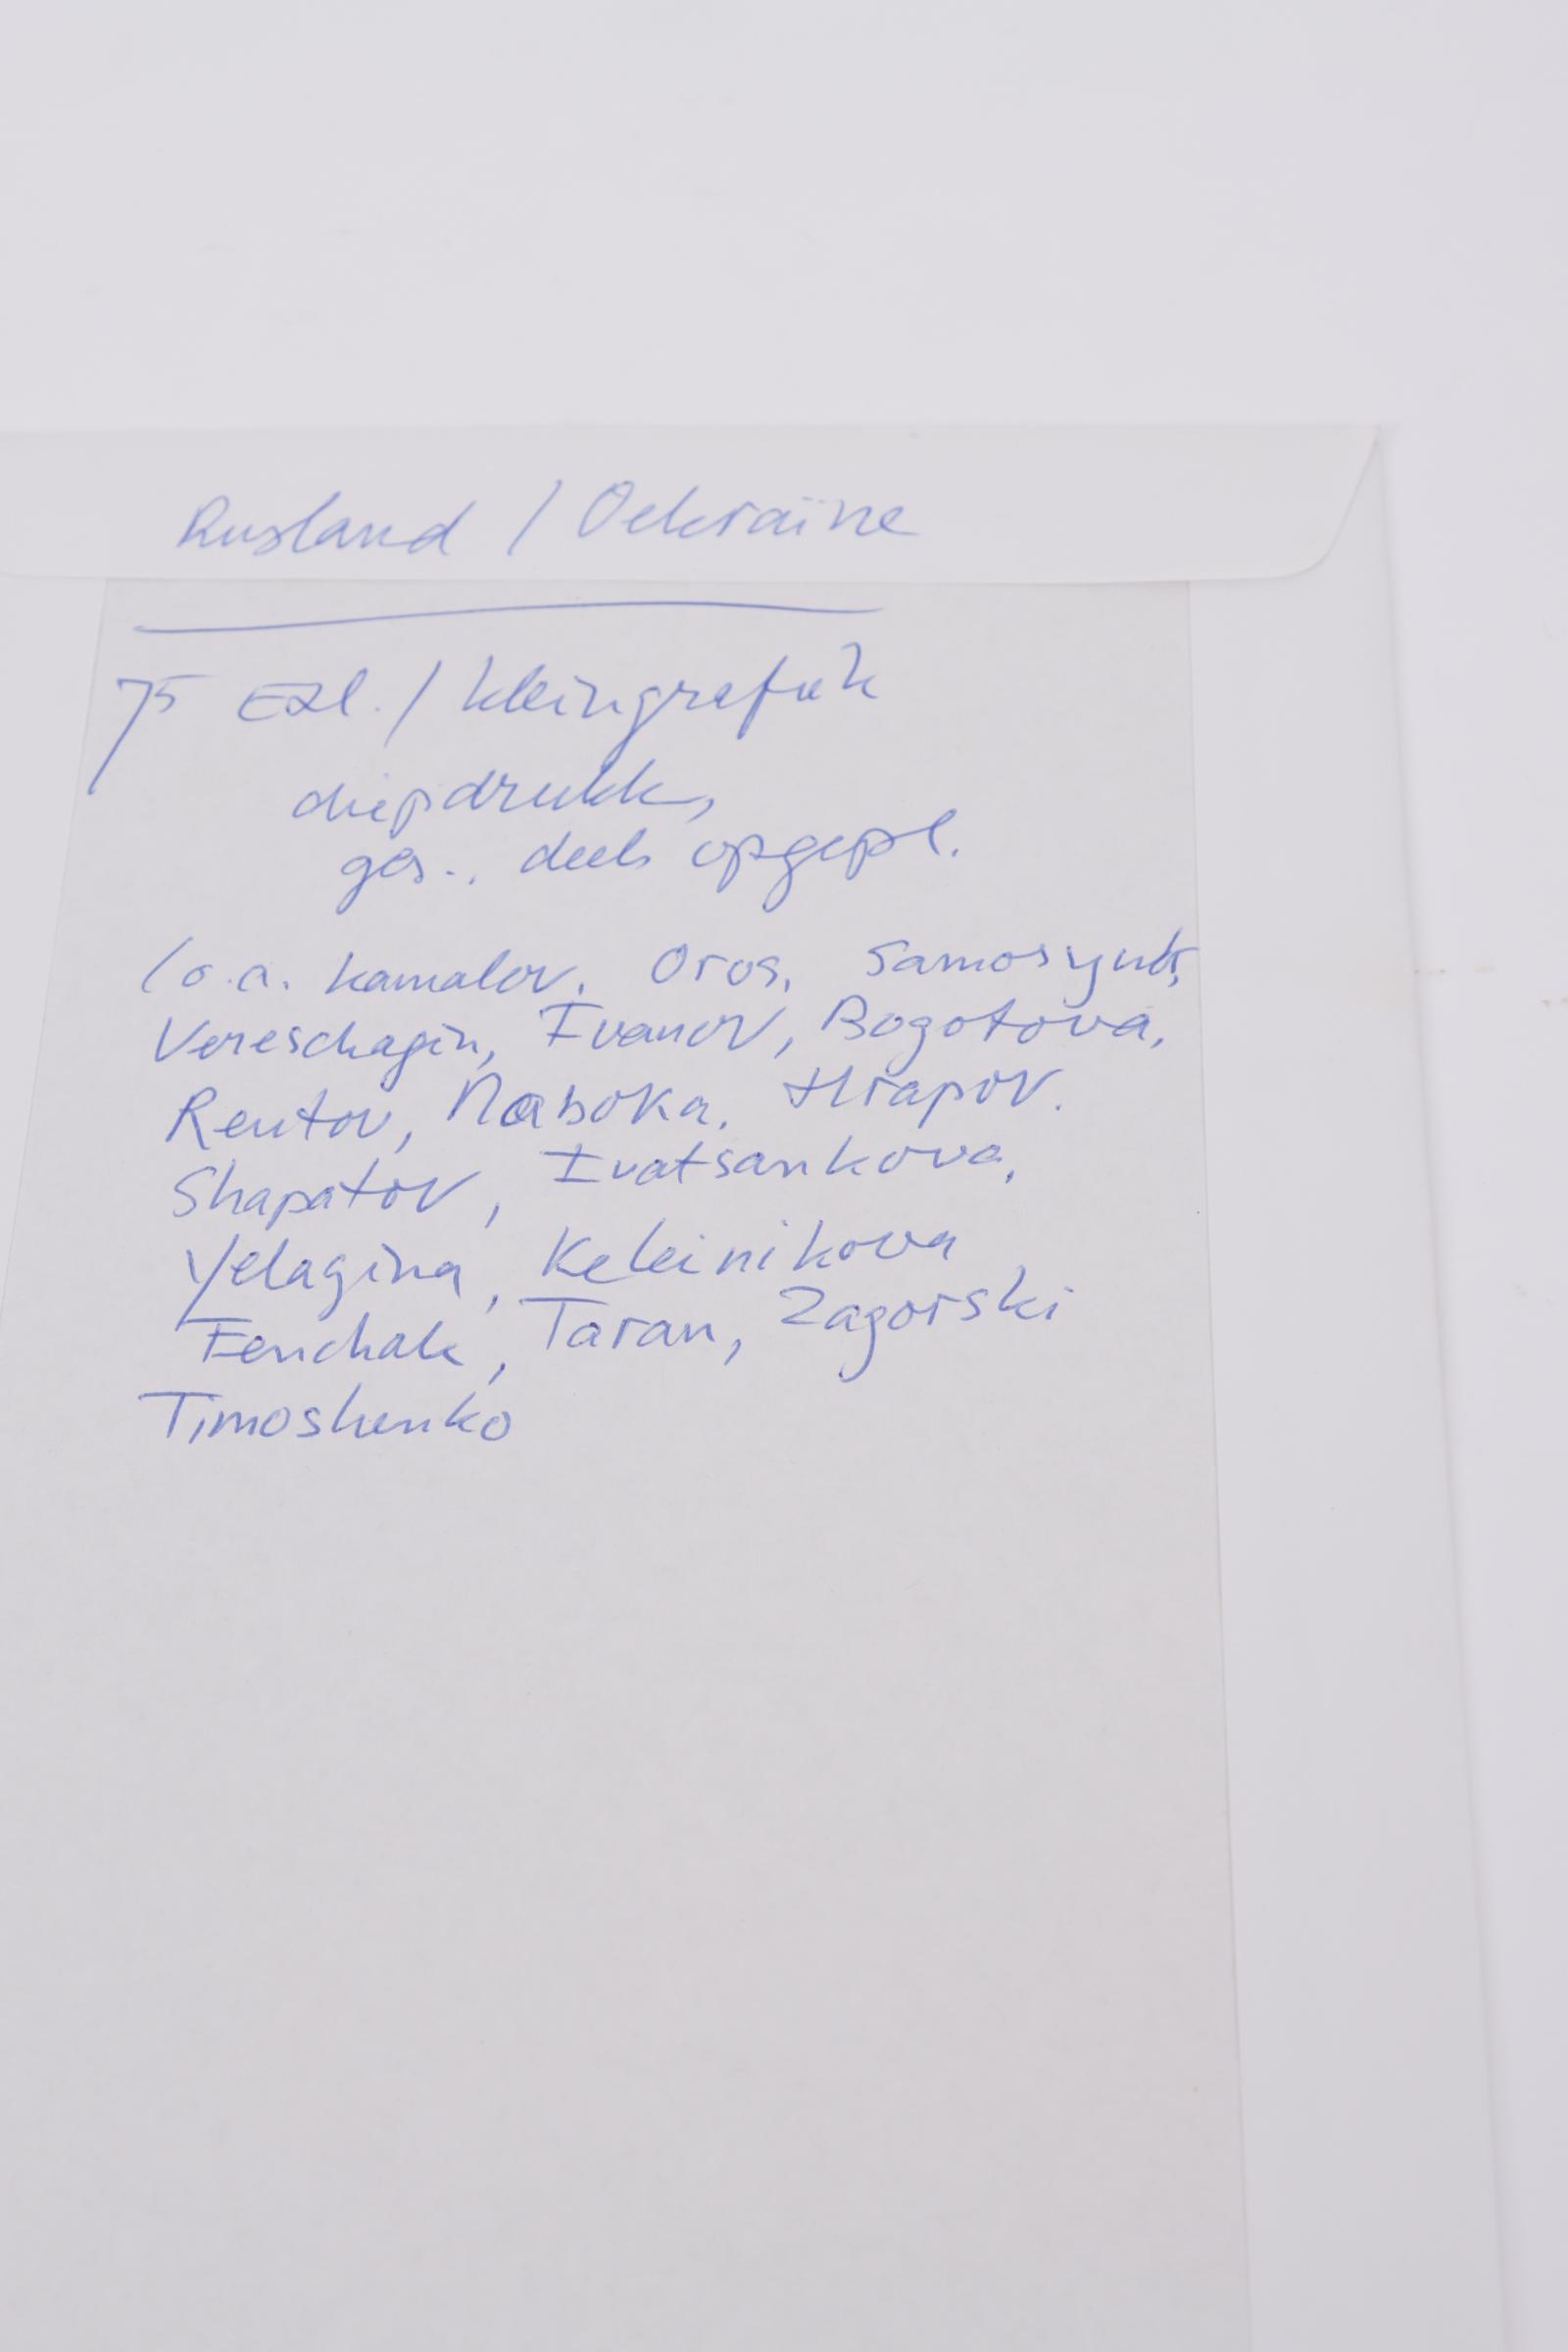 Rusland / Oekraïne
75 Exl. / kleingrafiek
diepdrukk,
ges., deels opgepl.
(o.a. Kamalov, Oros, Samosyuk,
Vereschagin, Ivanov, Bogotova,
Rentov, Naboka, Hrapov.
Shapatov, Ivatsankova,
Yelagina, Keleinikova
Fenchak, Taran, Zagorski
Timoshenko